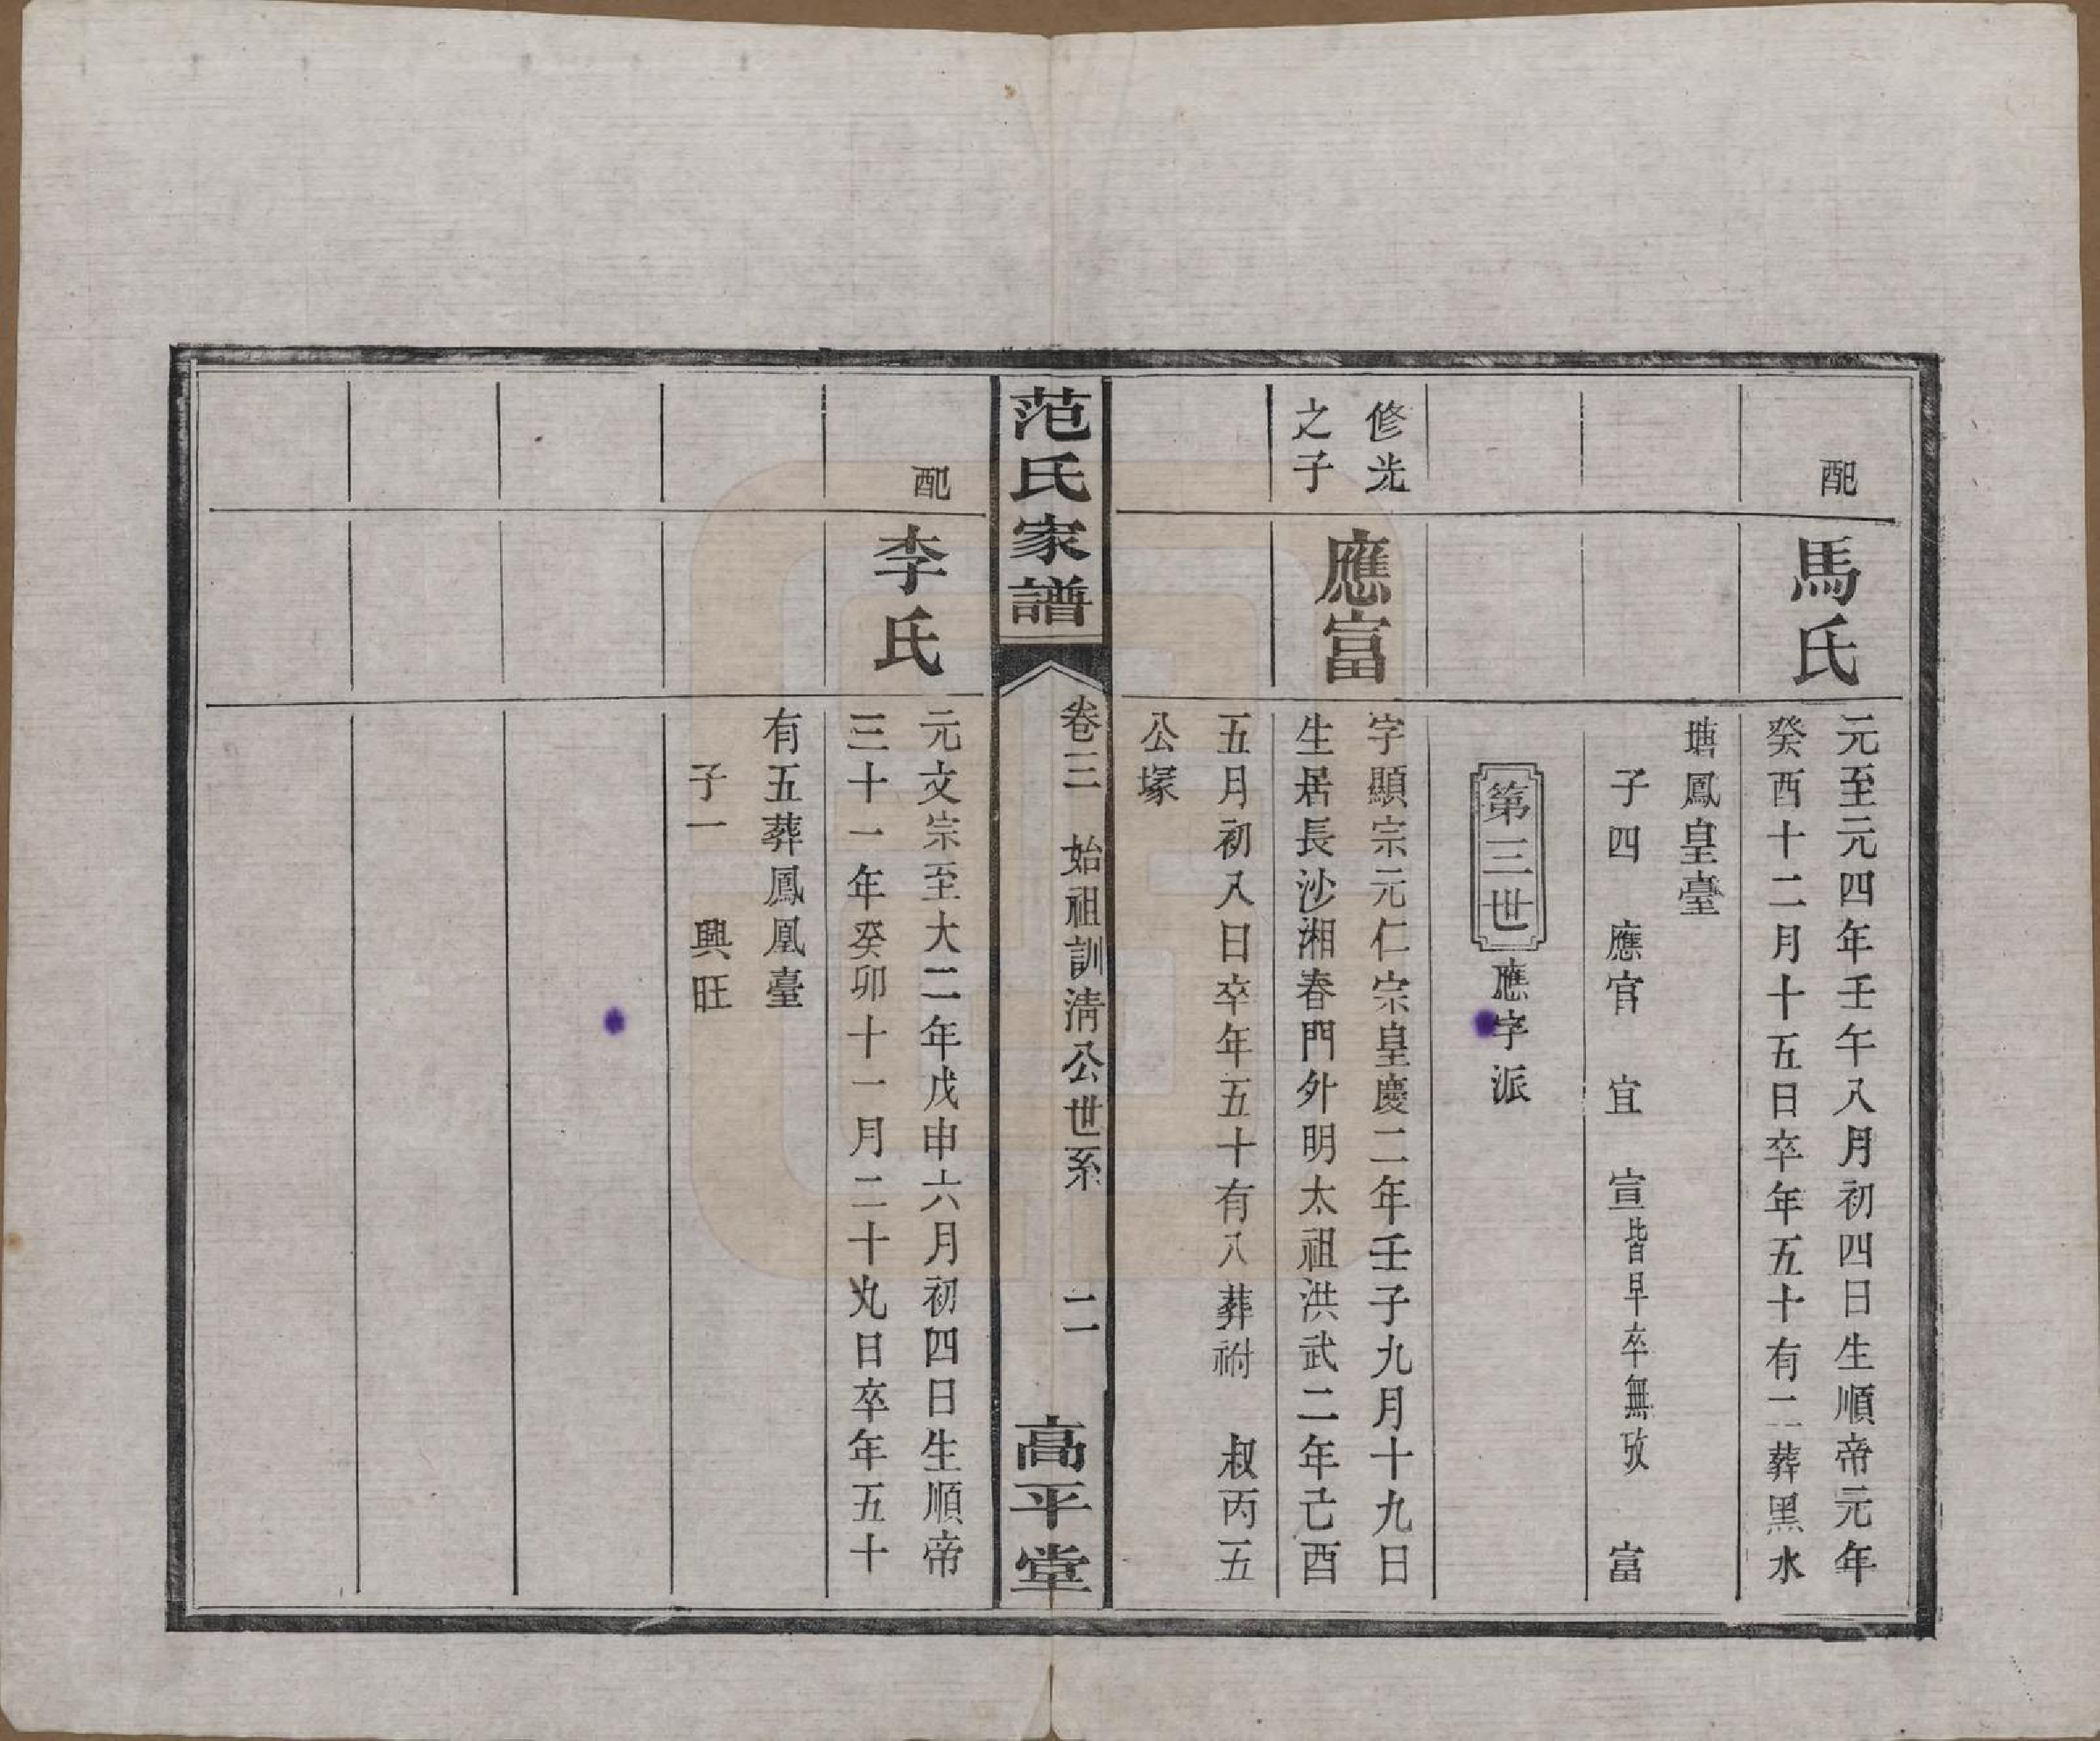 配
馬氏
元至元四年壬午八月初四日生順帝元年
癸酉十二月十五日卒年五十有二葬黑水
塘鳳皇臺
子四　應官　宜　宣皆早卒無攷　富
第三世
應字派
修光
之子
應富
字顯宗元仁宗皇慶二年壬子九月十九日
生居長沙湘春門外明太祖洪武二年己酉
五月初八日卒年五十有八葬祔　叔丙五
公塚
范氏家譜
卷三　始祖訓清公世系　二
高平堂
配
李氏
元文宗至大二年戊申六月初四日生順帝
三十一年癸卯十一月二十九日卒年五十
有五葬鳳凰臺
子一　興旺